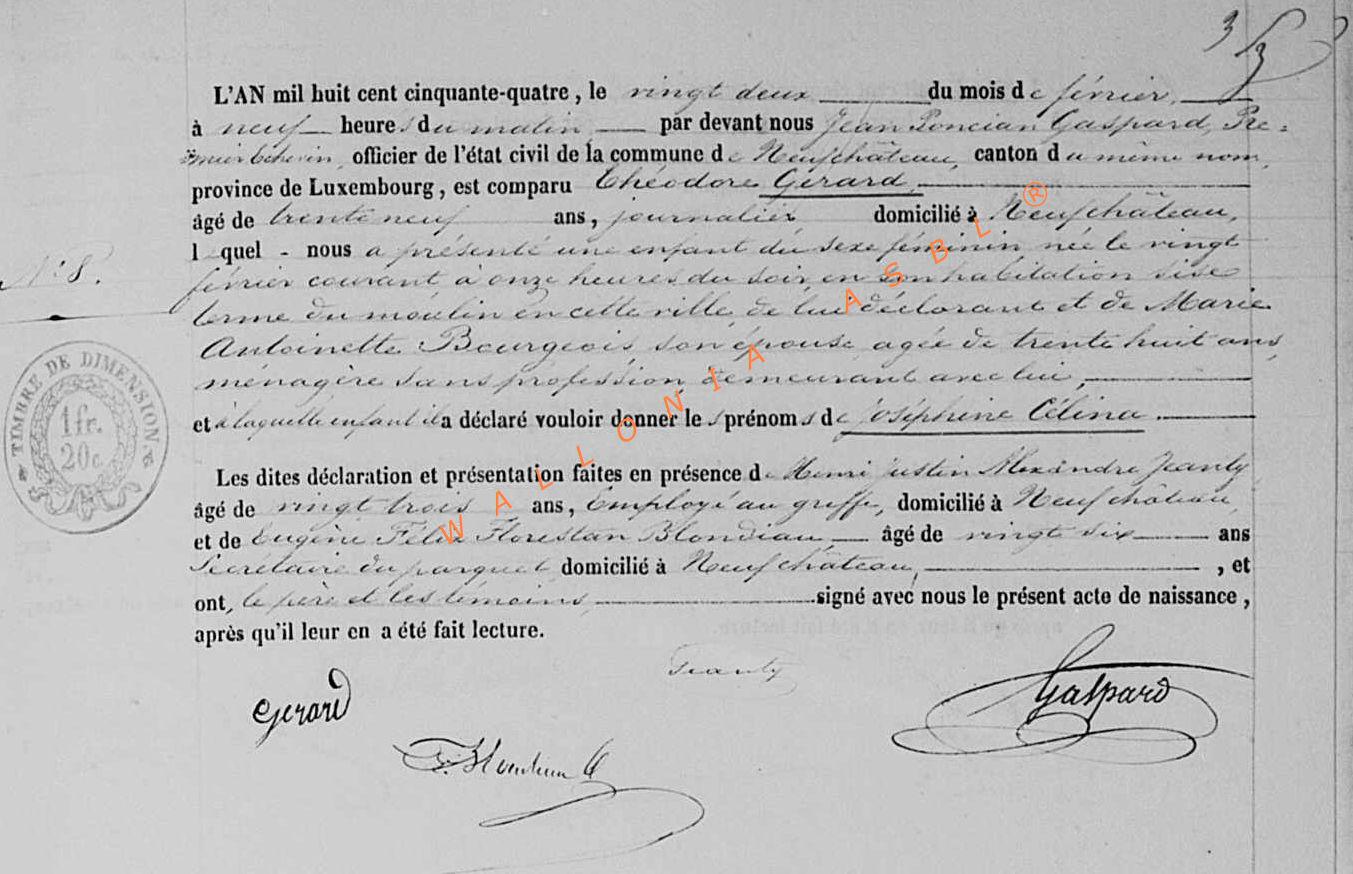 3/3
L'AN mil huit cent cinquante-quatre, le vingt deux du mois de février
à neuf heures du matin par devant nous Jean Poncian Gaspard, Pre=
=mier Echevin, officier de l'état civil de la commune de Neufchâteau, canton du même nom,
province de Luxembourg, est comparu Théodore Gérard,
âgé de trente neuf ans, journalier domicilié à Neufchâteau,
l quel - nous a présenté une enfant du sexe féminin, née le vingt
N° 8.
février courant, à onze heures du soir, en son habitation sise
terme du moulin en cette ville, de lui déclarant et de Marie
Antoinette Bourgeois, son épouse, agée de trente huit ans,
ménagère sans profession, demeurant avec lui,
et à laquelle enfant il a déclaré vouloir donner les prénoms de Joséphine Célina
TIMBRE DE DIMENSION
1 fr.
20c.
Les dites déclaration et présentation faites en présence de Henri Justin Alexandre Jeanty
âgé de vingt trois ans, Employé au greffe, domicilié à Neufchâteau,
et de Eugène Félix Florestan Blondiau, âgé de vingt six ans
Secrétaire du parquet domicilié à Neufchâteau, , et
ont, le père et les témoins, signé avec nous le présent acte de naissance,
après qu'il leur en a été fait lecture.
Jeanty
Gerard
Gaspard
WALLONIA ASBL ®